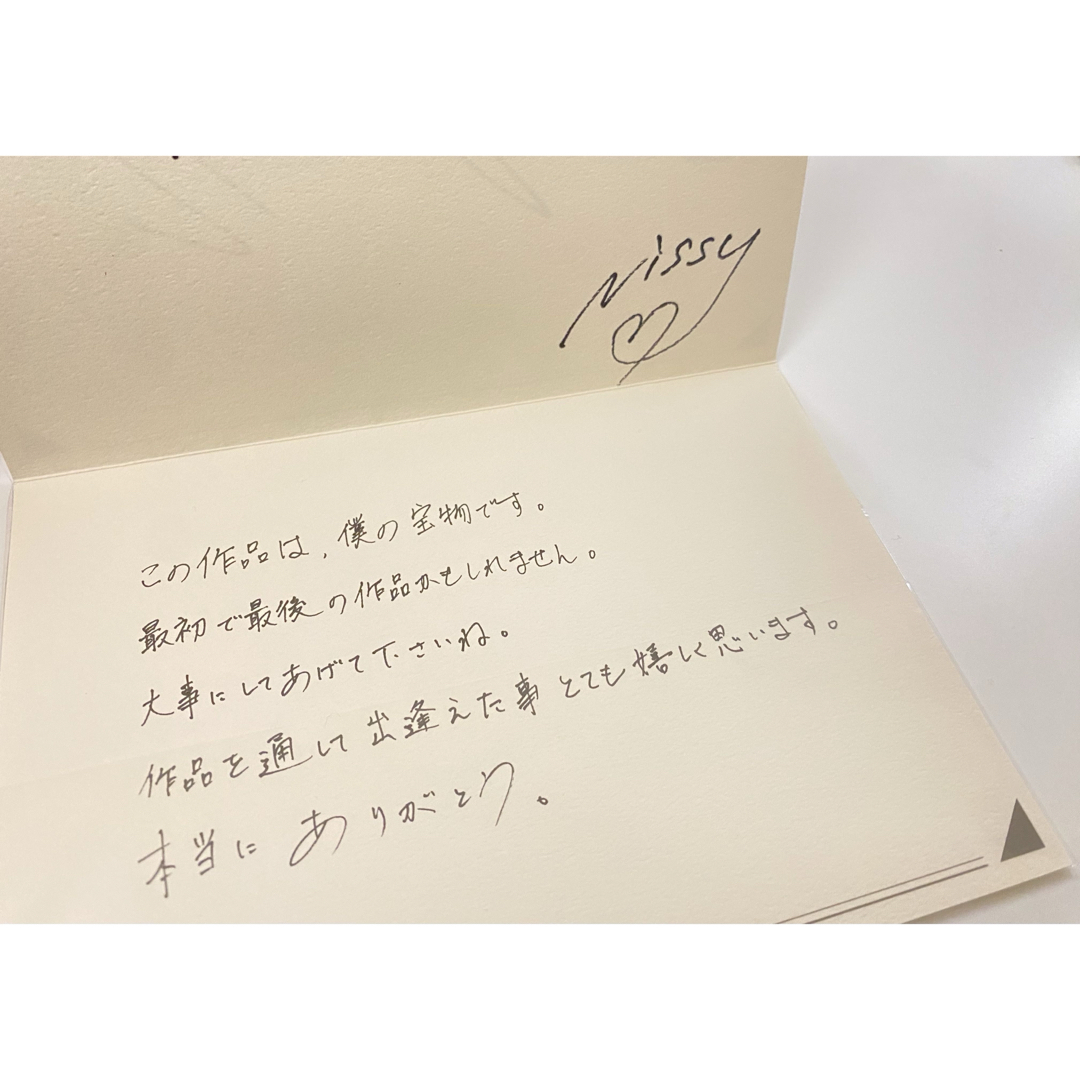 Nissy
この作品は、僕の宝物です。
最初で最後の作品かもしれません。
大事にしてあげて下さいね。
作品を通して出逢えた事とても嬉しく思います。
本当にありがとう。